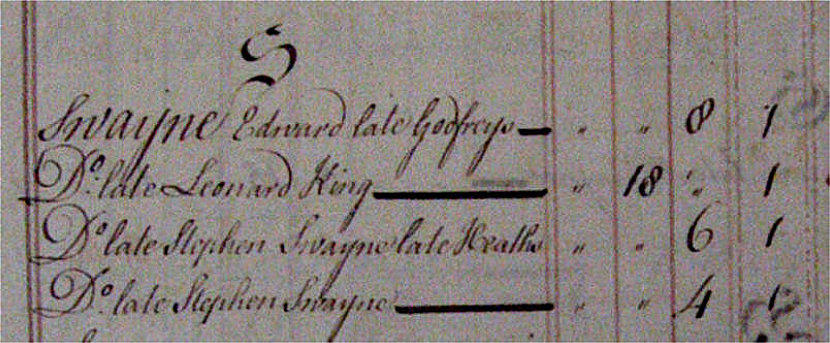 S
Swayne Edward late Godfreys — " " 8 1
Do. late Leonard King — " 18 " 1
Do late Stephen Swayne late Heaths " " 6 1
Do. late Stephen Swayne — " " 4 1